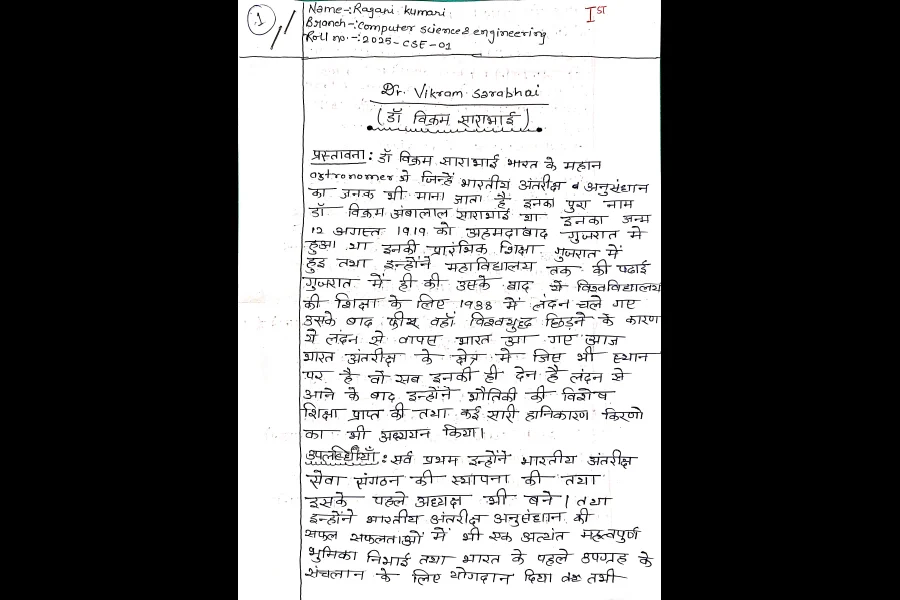 1
Name-: Ragani kumari
Branch-: Computer science & engineering
Roll no.-: 2025-CSE-01
IST
Dr. Vikram Sarabhai
(डॉ विक्रम साराभाई)
प्रस्तावना : डॉ विक्रम साराभाई भारत के महान
astronomer थे जिन्हें भारतीय अंतरीक्ष व अनुसंधान
का जनक भी माना जाता है इनका पुरा नाम
डॉ विक्रम अंबालाल साराभाई था इनका जन्म
12 अगस्त 1919 को अहमदाबाद गुजरात मे
हुआ था इनकी प्रारंभिक शिक्षा गुजरात में
हुइ तथा इन्होंने महाविद्यालय तक की पढाई
गुजरात में ही की उसके बाद ये विश्वविद्यालय
की शिक्षा के लिए 1938 में लंदन चले गए
उसके बाद वहाँ विश्वयुद्ध छिड़ने के कारण
ये लंदन से वापस भारत आ गए आज
भारत अंतरीक्ष के क्षेत्र मे जिस भी स्थान
पर है वो सब इनकी ही देन है लंदन से
आने के बाद इन्होंने भौतिकी की विशेष
शिक्षा प्राप्त की तथा कई सारी हानिकारण किरणो
का भी अध्ययन किया।
उपलब्धियाँ : सर्व प्रथम इन्होंने भारतीय अंतरीक्ष
सेवा संगठन की स्थापना की तथा
इसके पहले अध्यक्ष भी बने। तथा
इन्होंने भारतीय अंतरीक्ष अनुसंधान की
सफल सफलताओं में भी एक अत्यंत महत्वपुर्ण
भुमिका निभाई तथा भारत के पहले उपग्रह के
संचलान के लिए योगदान दिया तभी